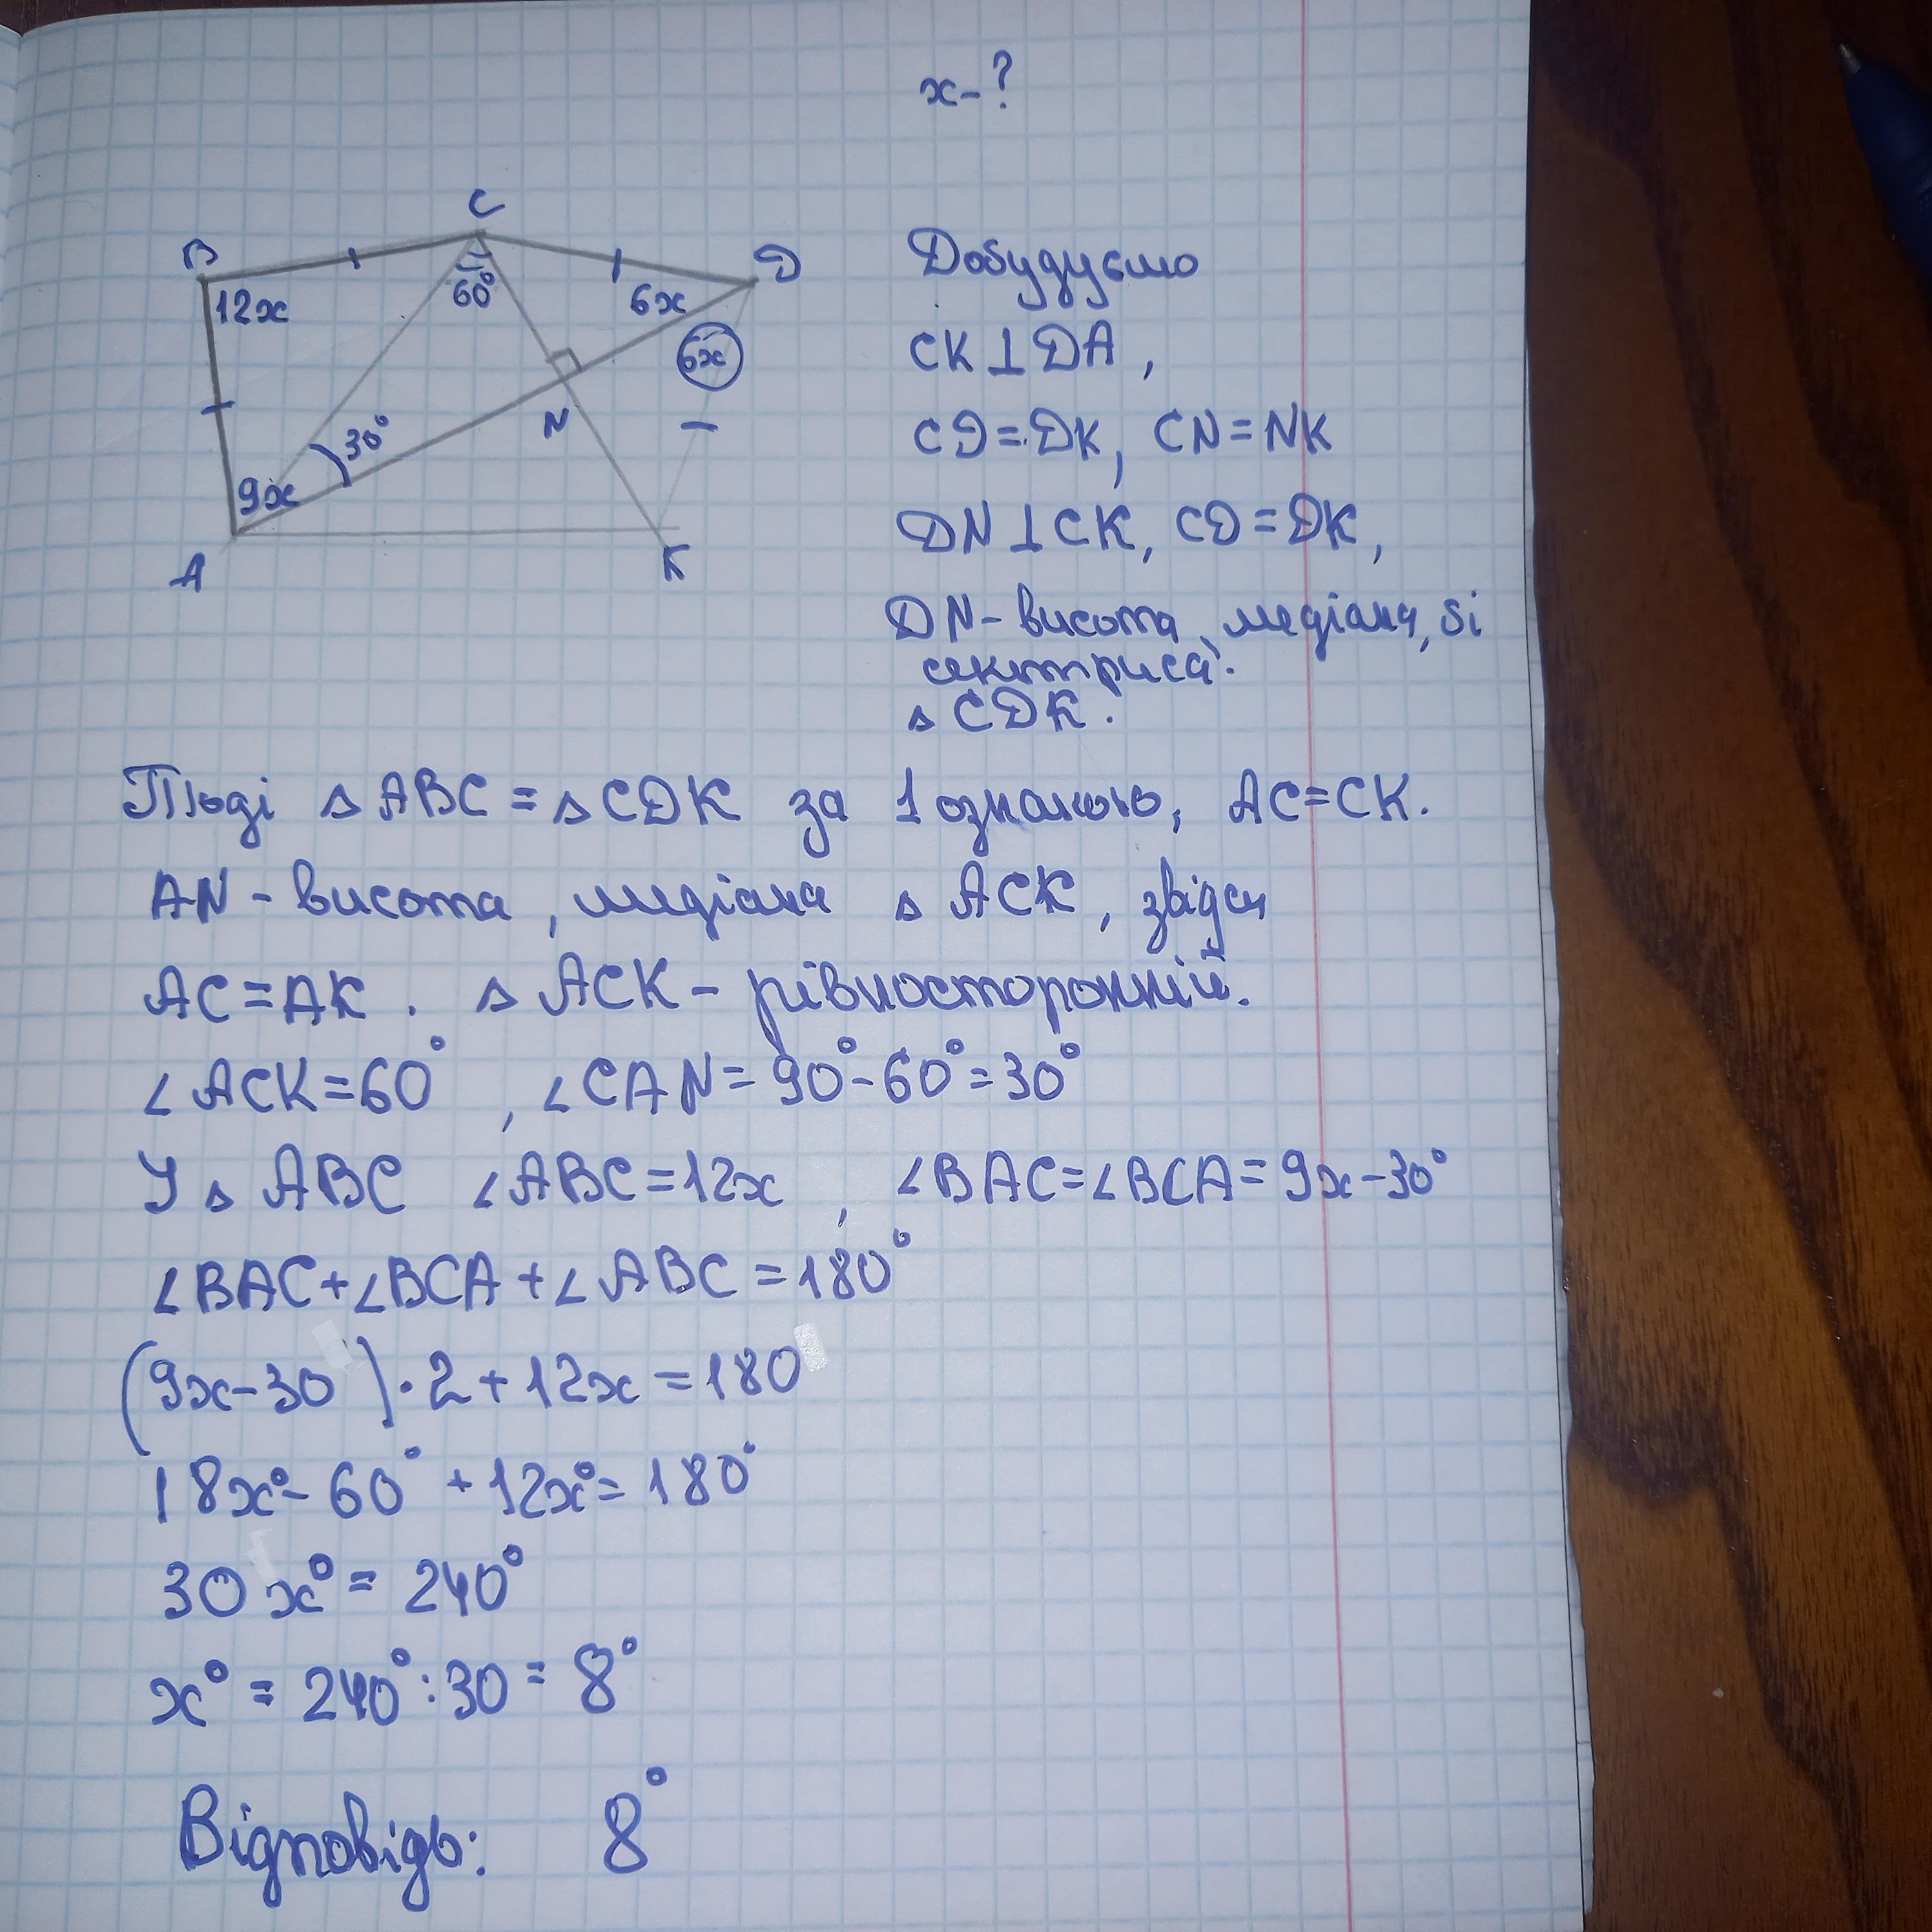 x-?
B
C
D
12x
60°
6x
6x
N
30°
9x
A
K
Добудуємо
CK⊥DA,
CD=DK, CN=NK
DN⊥CK, CD=DK,
DN-висота, медіана, бі
сектриса.
△CDK.
Тоді △ABC=△CDK за 1 ознакою, AC=CK.
AN-висота, медіана △ACK, звідси
AC=AK. △ACK-рівносторонній.
∠ACK=60°, ∠CAN=90°-60°=30°
У △ABC ∠ABC=12x, ∠BAC=∠BCA=9x-30°
∠BAC+∠BCA+∠ABC=180°
(9x-30)·2+12x=180
18x°-60°+12x°=180°
30x°=240°
x°=240°:30=8°
Відповідь: 8°